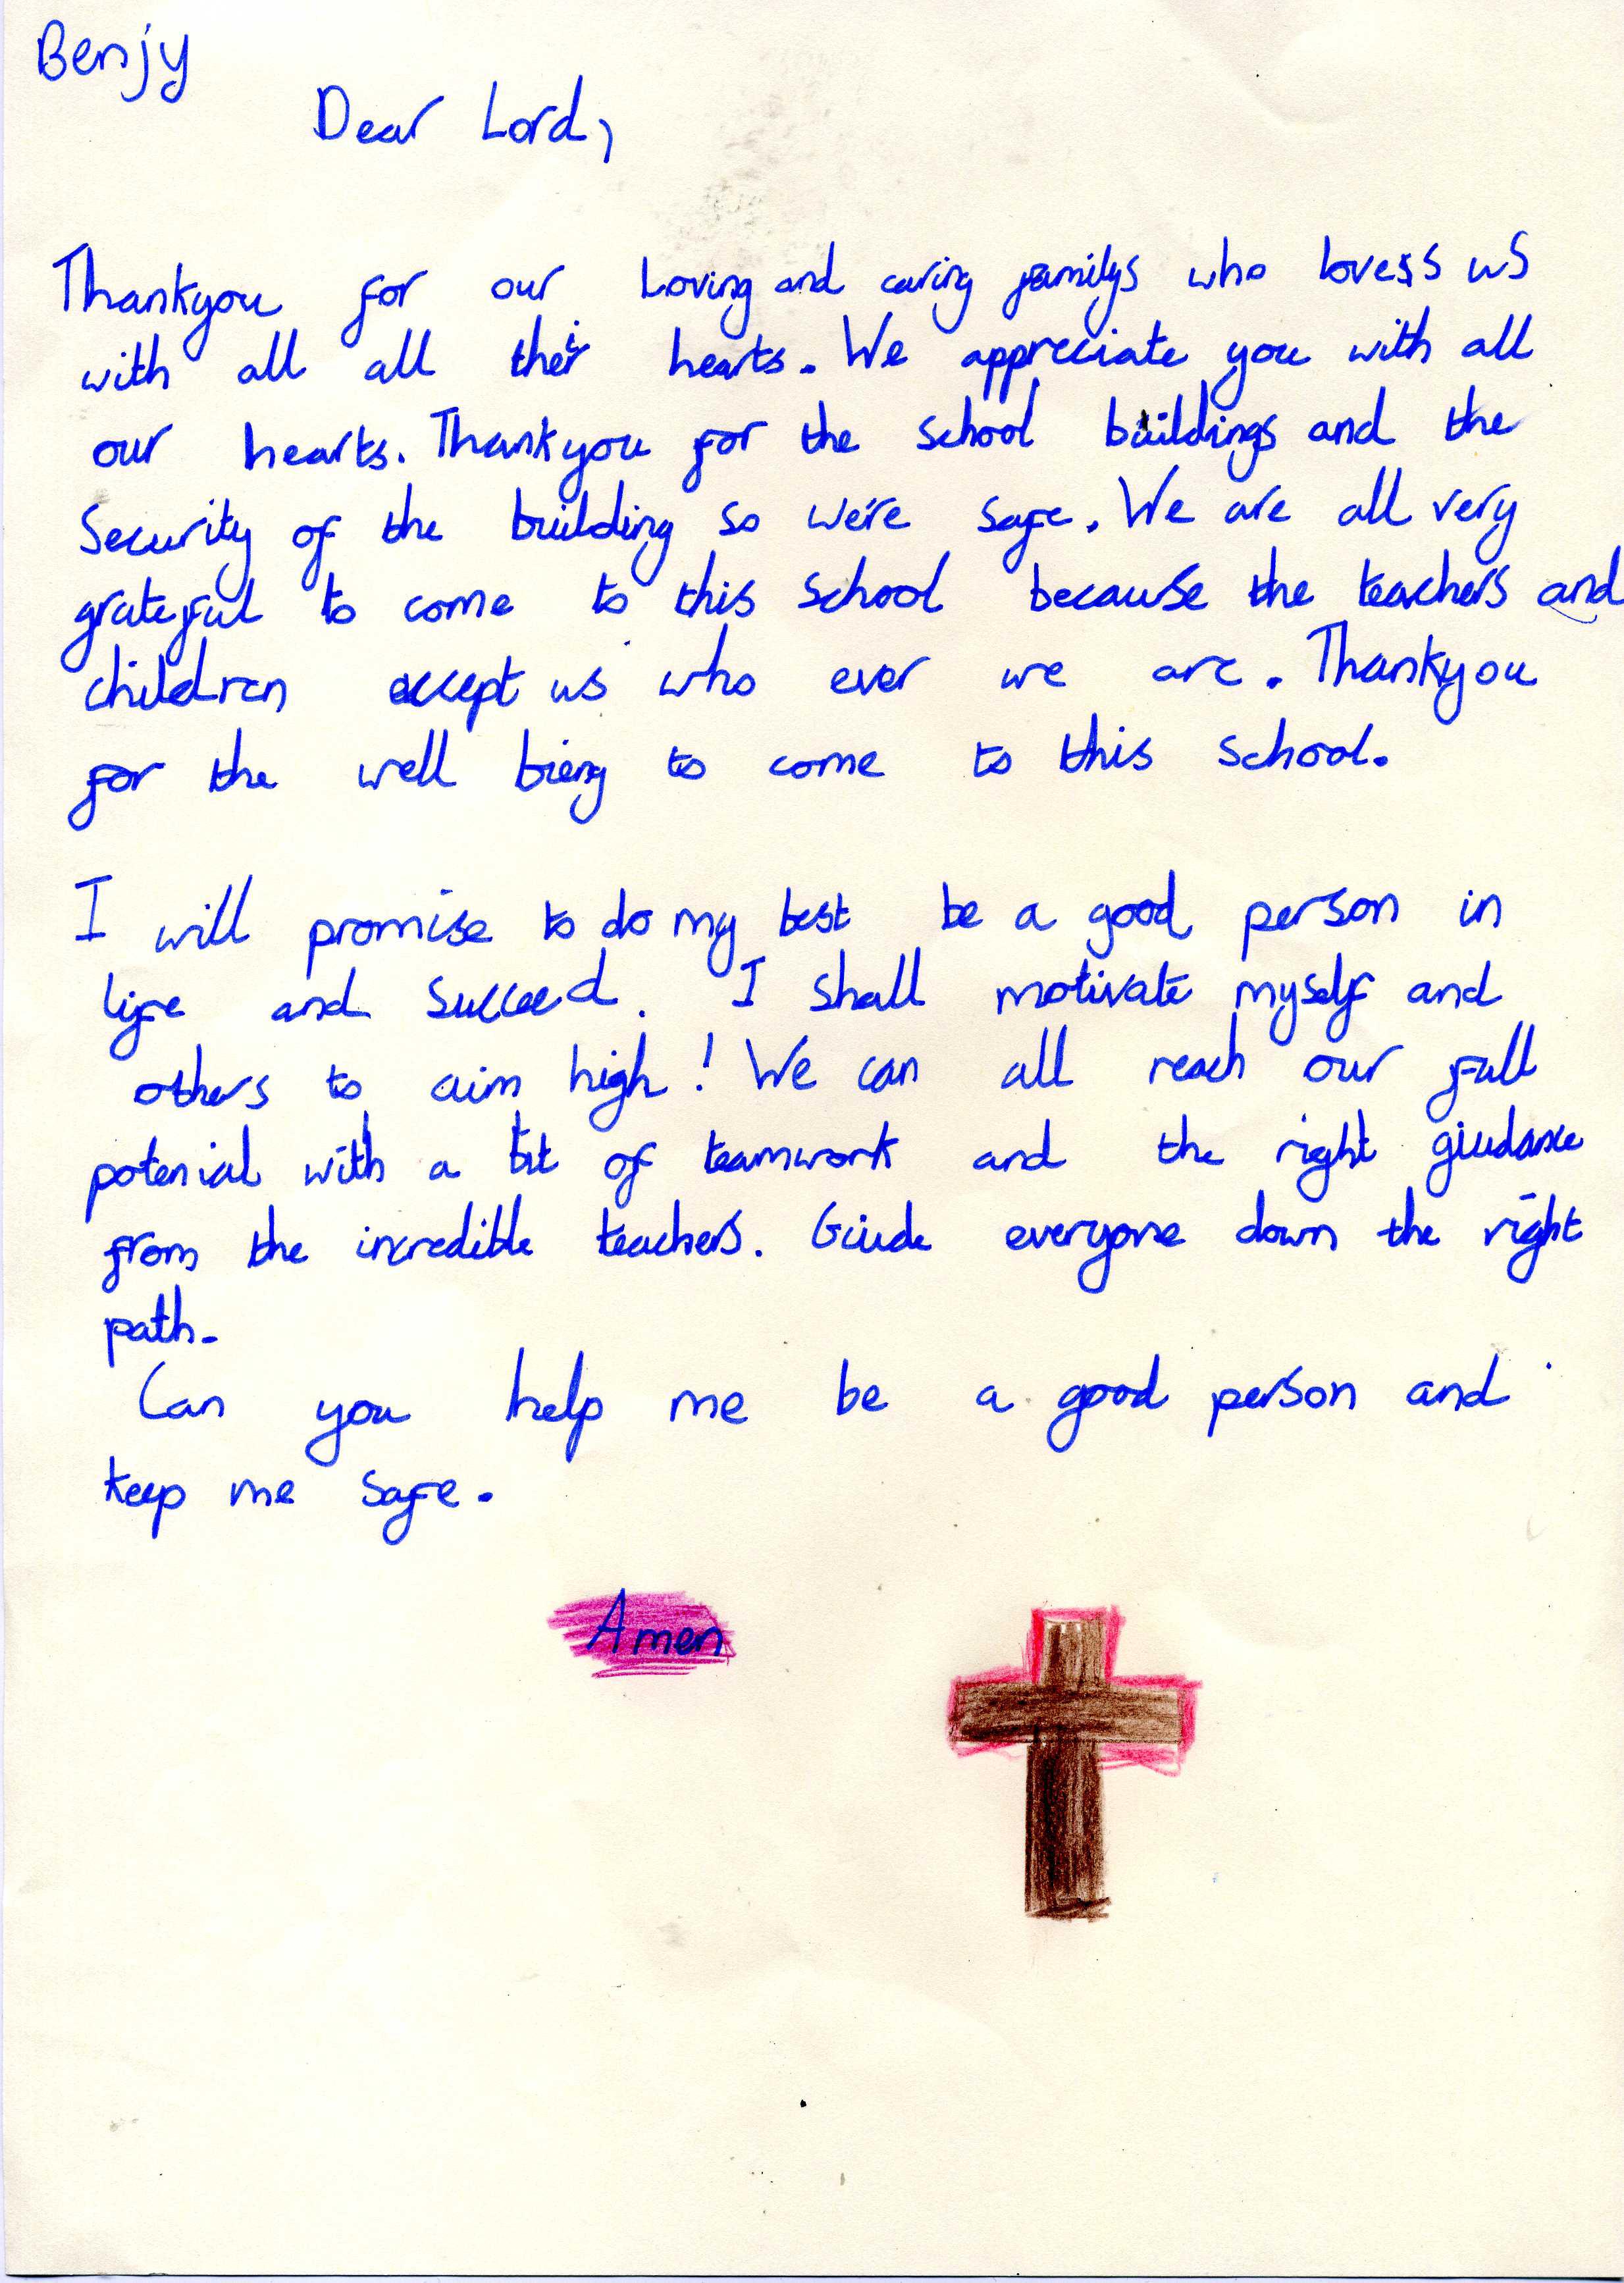 Benjy
Dear Lord,
Thankyou for our Loving and caring familys who lovess us
with all all their hearts. We appreciate you with all
our hearts. Thankyou for the school buildings and the
Security of the building so we're safe. We are all very
grateful to come to this school because the teachers and
children eccept us who ever we are. Thankyou
for the well bieng to come to this school.
I will promise to do my best be a good person in
life and Succeed. I shall motivate myself and
others to aim high! We can all reach our full
potenial with a bit of teamwork and the right giudance
from the incredible teachers. Giude everyone down the right
path.
Can you help me be a good person and
keep me safe.
Amen